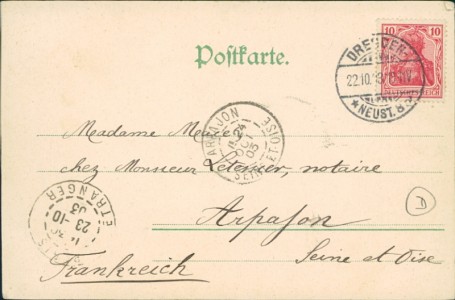 Postkarte.
10 10
DEUTSCHES REICH
DRESDEN
22.10.
*NEUST. 8
ARPAJON
24
OCT
03
SEINE-ET-OISE
Madame
chez Monsieur Letessier, notaire
Arpajon
Seine et Oise
Frankreich
ETRANGER
23-10
03
D